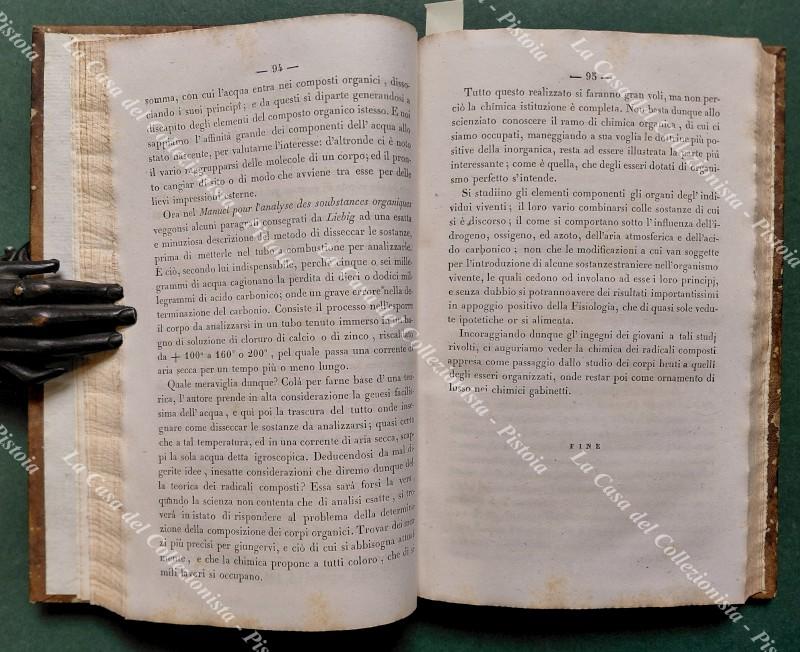 — 94 —
somma, con cui l'acqua entra nei composti organici, disso-
ciando i suoi principj; e da questi si diparte generandosi a
discapito degli elementi del composto organico istesso. E noi
sappiamo l'affinità grande dei componenti dell'acqua allo
stato nascente, per valutarne l'interesse: d'altronde ci è noto
il vario raggrupparsi delle molecole di un corpo; ed il pron-
to cangiar di sito o di modo che avviene tra esse per delle
lievi impressioni esterne.
Ora nel Manuel pour l'analyse des soubstances organiques
veggonsi alcuni paragrafi consegrati da Liebig ad una esatta
e minuziosa descrizione del metodo di disseccar le sostanze,
prima di metterle nel tubo a combustione per analizzarle.
E ciò, secondo lui indispensabile, perché cinque o sei mille-
grammi di acqua cagionano la perdita di dieci o dodici mil-
legrammi di acido carbonico; onde un grave errore nella de-
terminazione del carbonio. Consiste il processo nell'esporre
il corpo da analizzarsi in un tubo tenuto immerso in un ba-
gno di soluzione di cloruro di calcio o di zinco, riscaldato
da + 100° a 160° o 200°, pel quale passa una corrente di
aria secca per un tempo più o meno lungo.
Quale meraviglia dunque? Colà per farne base d' una teo-
rica, l'autore prende in alta considerazione la genesi facilis-
sima dell'acqua, e qui poi la trascura del tutto onde inse-
gnare come disseccar le sostanze da analizzarsi; quasi certo
che a tal temperatura, ed in una corrente di aria secca, scap-
pi la sola acqua detta igroscopica. Deducendosi da mal di-
gerite idee, inesatte considerazioni che diremo dunque del-
la teorica dei radicali composti? Essa sarà forsi la vera
quando la scienza non contenta che di analisi esatte, si tro-
verà in istato di rispondere al problema della determina-
zione della composizione dei corpi organici. Trovar dei mez-
zi più precisi per giungervi, e ciò di cui si abbisogna attual-
mente, e che la chimica propone a tutti coloro, che di si-
mili lavori si occupano.
— 95 —
Tutto questo realizzato si faranno gran voli, ma non per-
ciò la chimica istituzione è completa. Non basta dunque allo
scienziato conoscere il ramo di chimica organica, di cui ci
siamo occupati, maneggiando a sua voglia le dottrine più po-
sitive della inorganica, resta ad essere illustrata la parte più
interessante; come è quella, che degli esseri dotati di organi-
smo perfetto s'intende.
Si studiino gli elementi componenti gli organi degl' indi-
vidui viventi; il loro vario combinarsi colle sostanze di cui
si è discorso; il come si comportano sotto l'influenza dell'i-
drogeno, ossigeno, ed azoto, dell'aria atmosferica e dell'aci-
do carbonico; non che le modificazioni a cui van soggette
per l'introduzione di alcune sostanze straniere nell'organismo
vivente, le quali cedono od involano ad esse i loro principj,
e senza dubbio si potranno avere dei risultati importantissimi
in appoggio positivo della Fisiologia, che di quasi sole vedu-
te ipotetiche or si alimenta.
Incoraggiando dunque gl' ingegni dei giovani a tali studj
rivolti, ci auguriamo veder la chimica dei radicali composti
appresa come passaggio dallo studio dei corpi bruti a quelli
degli esseri organizzati, onde restar poi come ornamento di
lusso nei chimici gabinetti.
FINE
La Casa del Collezionista - Pistoia
La Casa del Collezionista - Pistoia
La Casa del Collezionista - Pistoia
La Casa del Collezionista - Pistoia